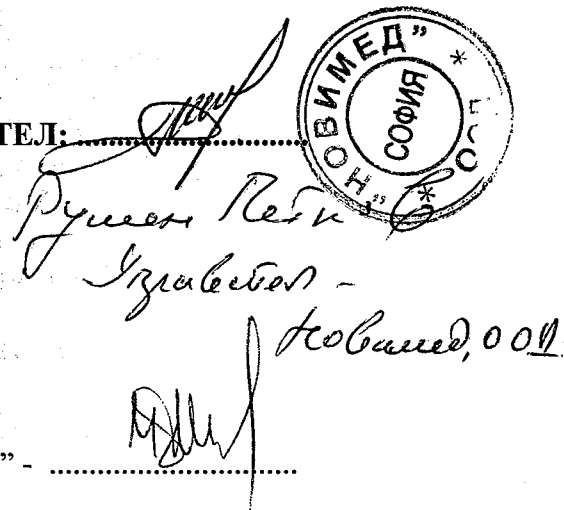 ТЕЛ: ..............................
"НОВИМЕД" * ООО *
СОФИЯ
Румен Петков
Управител -
Новимед, ООД
” - ..............................